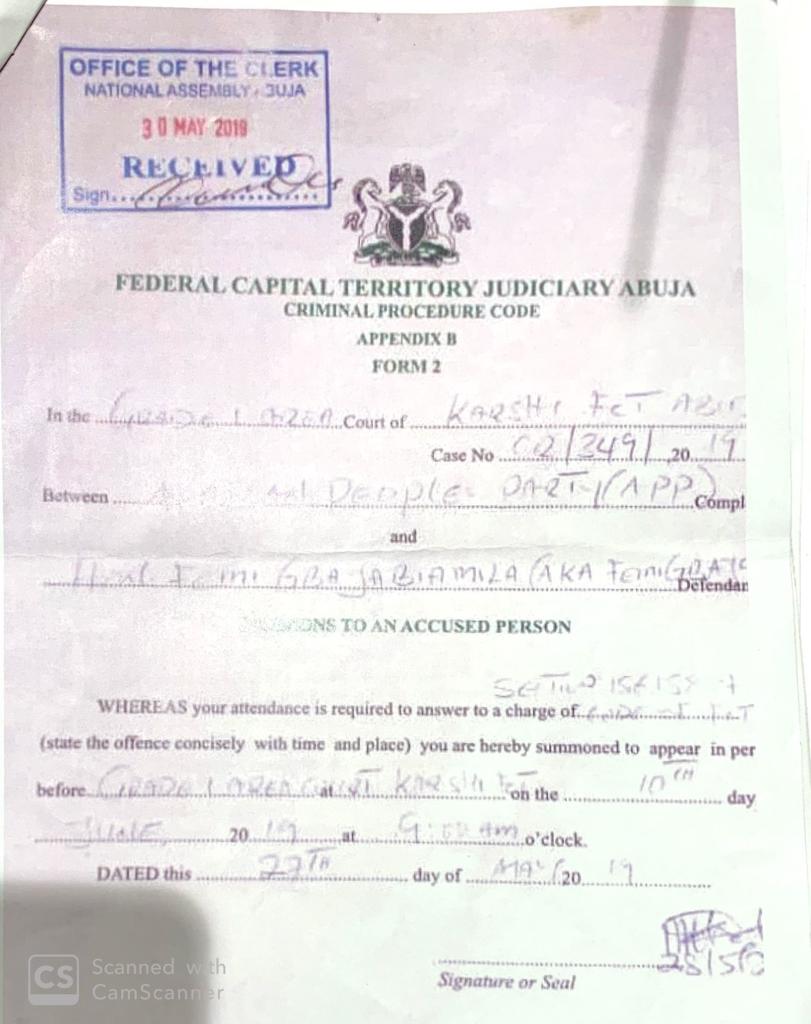 OFFICE OF THE CLERK
NATIONAL ASSEMBLY, BUJA
30 MAY 2019
RECEIVED
Sign
FEDERAL CAPITAL TERRITORY JUDICIARY ABUJA
CRIMINAL PROCEDURE CODE
APPENDIX B
FORM 2
In the GRADE 1 AREA Court of KARSHI FCT ABU
Case No CR/249/ 2019
Between PEOPLES PARTY (APP) Compl
and
Hon. Femi GBAJABIAMILA (AKA Femi GBAJA
Defendan
ONS TO AN ACCUSED PERSON
WHEREAS your attendance is required to answer to a charge of
(state the offence concisely with time and place) you are hereby summoned to appear in per
before GRADE 1 AREA COURT KARSHI FCT on the 10TH day
JUNE, 2019 at 9:00 am o'clock.
DATED this 27TH day of MAY 2019
Signature or Seal
CS Scanned with
CamScanner